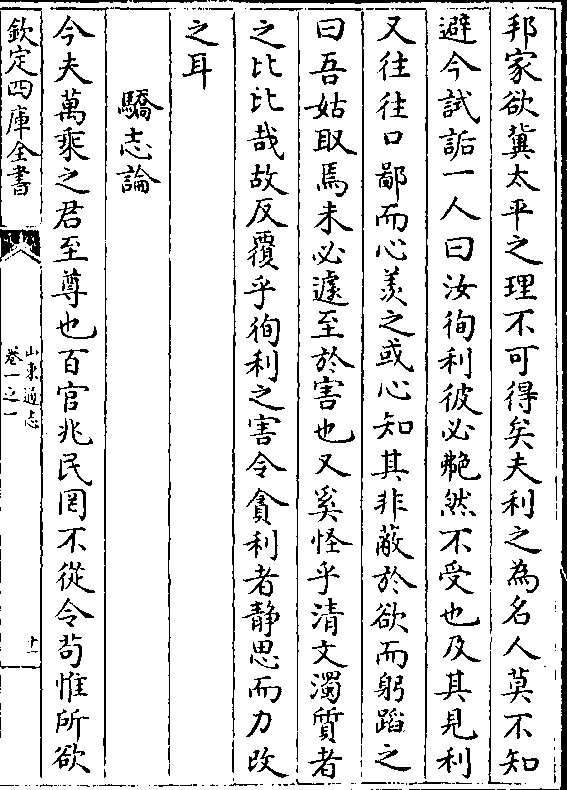 邦家欲冀太平之理不可得矣夫利之為名人莫不知
避今試詬一人曰汝徇利彼必艴然不受也及其見利
又往往口鄙而心羨之或心知其非蔽於欲而躬蹈之
曰吾姑取焉未必遽至於害也又奚怪乎清文濁質者
之比比哉故反覆乎徇利之害令貪利者静思而力改
之耳
驕志論
今夫萬乘之君至尊也百官兆民罔不從令茍惟所欲
欽定四庫全書
山東通志
卷一之一
十一